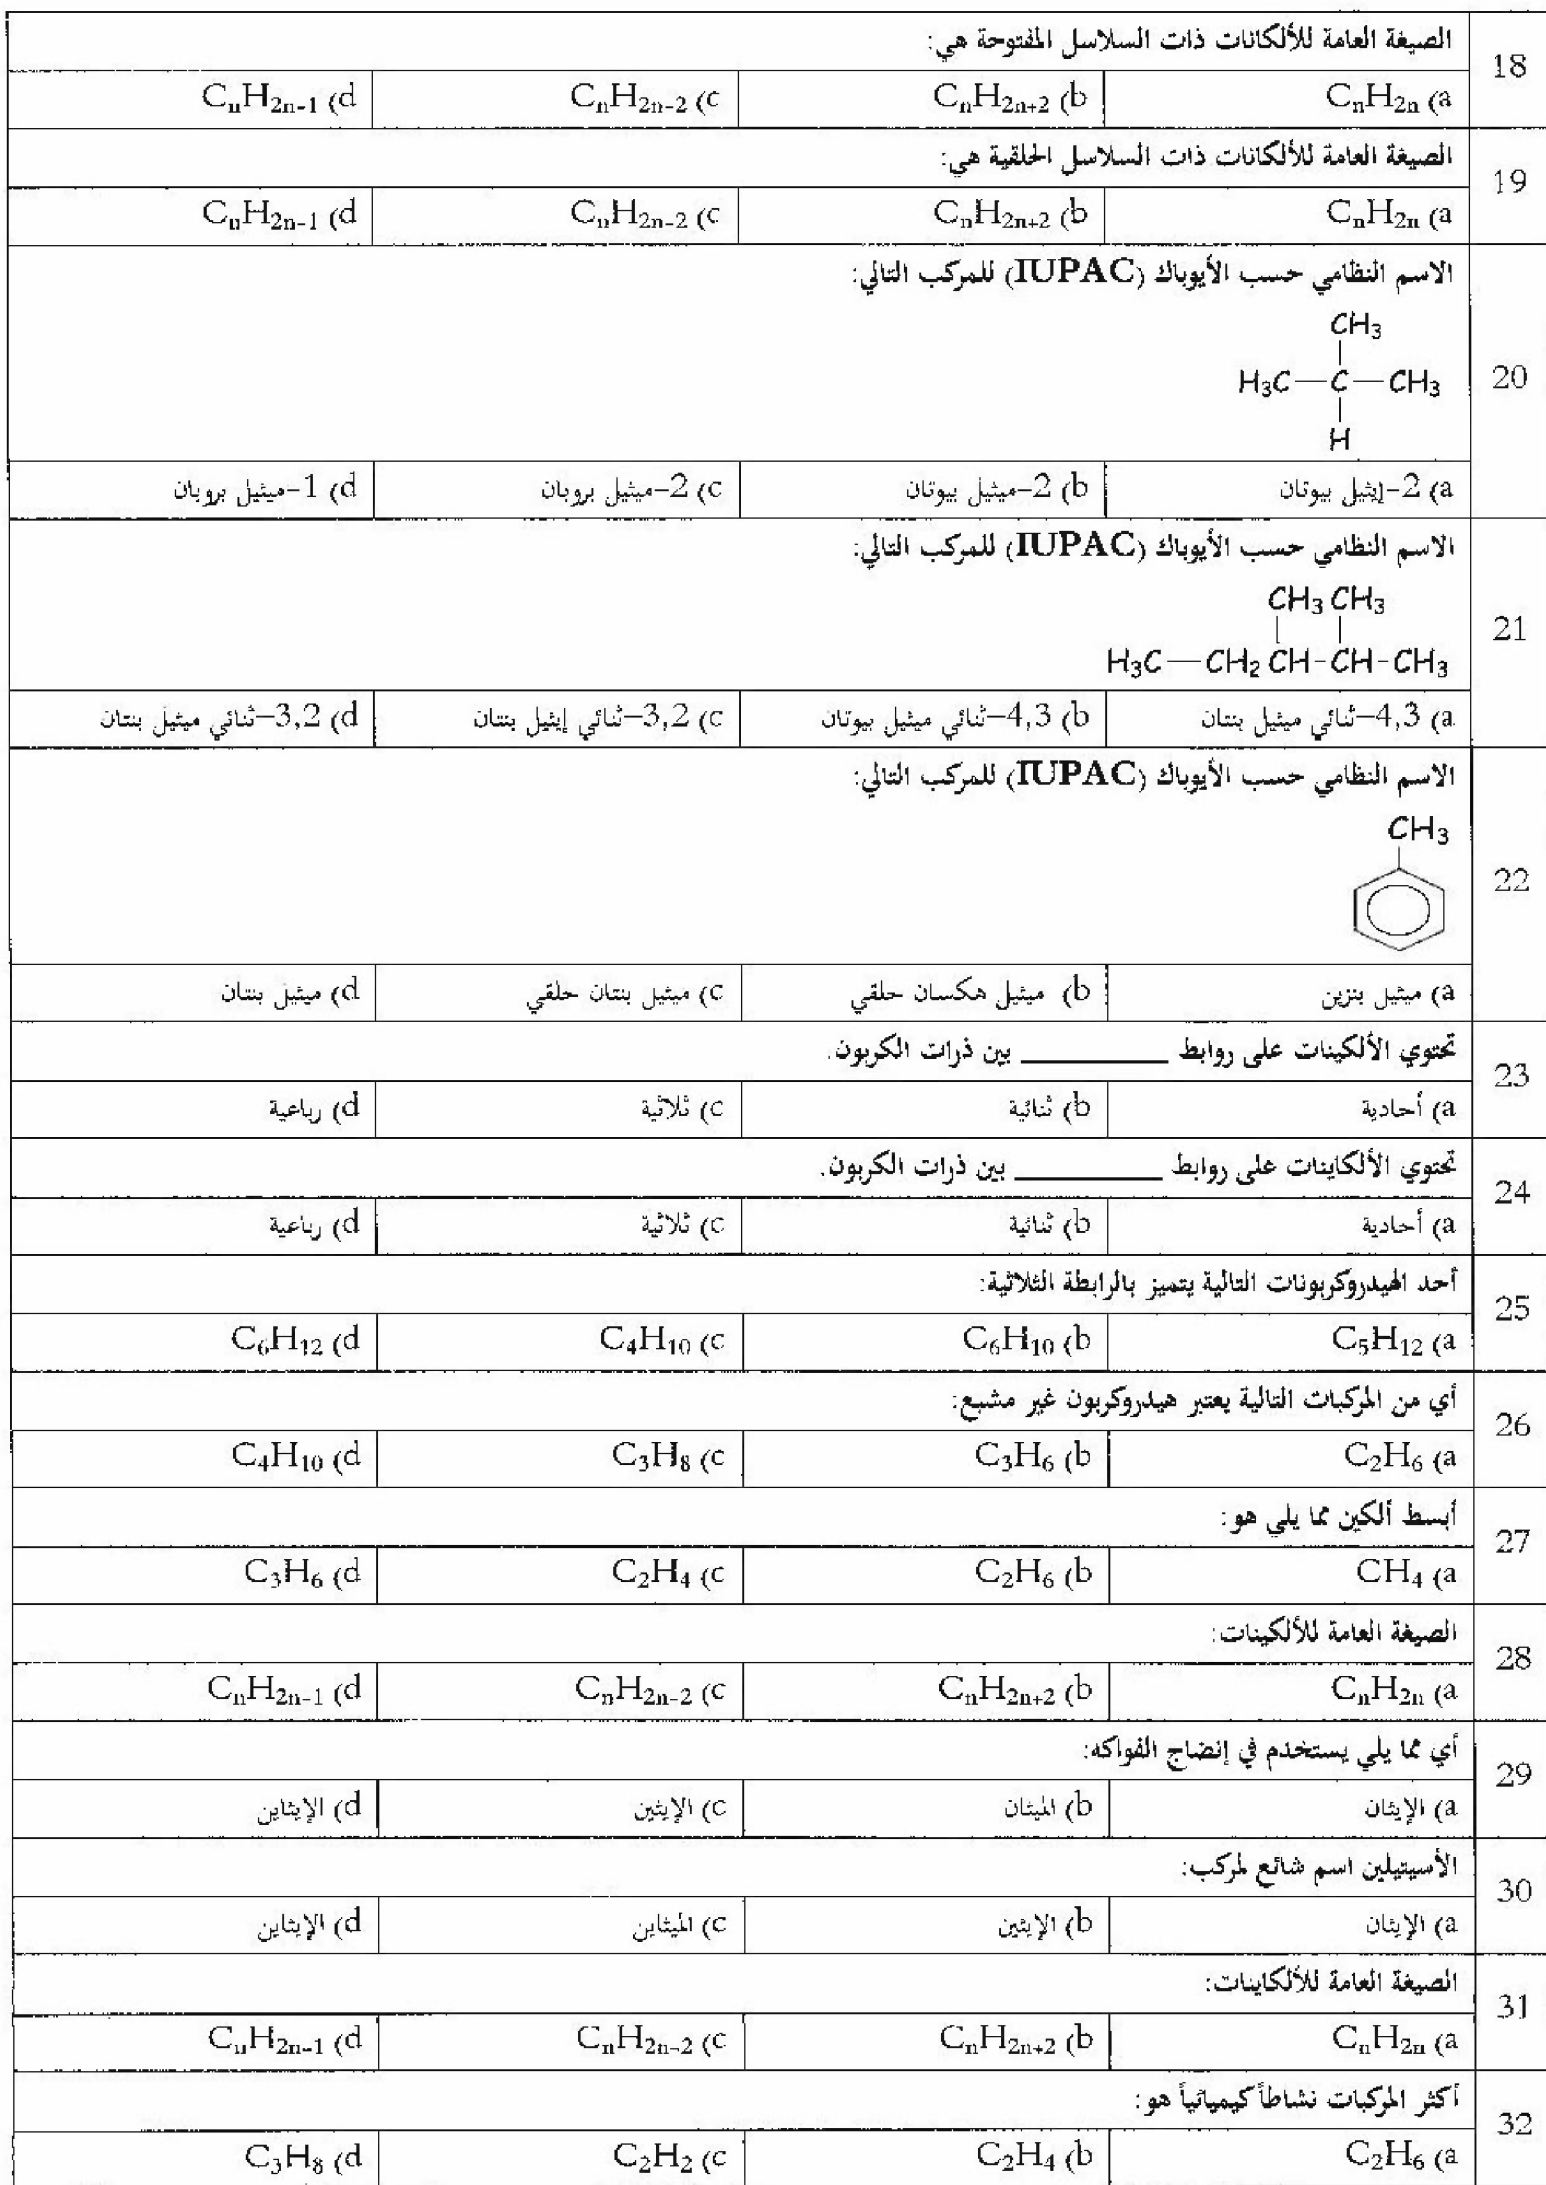 18
الصيغة العامة للألكانات ذات السلاسل المفتوحة هي:
a) CnH2n b) CnH2n+2 c) CnH2n-2 d) CnH2n-1
19
الصيغة العامة للألكانات ذات السلاسل الحلقية هي:
a) CnH2n b) CnH2n+2 c) CnH2n-2 d) CnH2n-1
20
الاسم النظامي حسب الأيوباك (IUPAC) للمركب التالي:
CH3
H3C—C—CH3
H
a) 2-إيثيل بيوتان b) 2-ميثيل بيوتان c) 2-ميثيل بروبان d) 1-ميثيل بروبان
21
الاسم النظامي حسب الأيوباك (IUPAC) للمركب التالي:
CH3 CH3
H3C—CH2 CH-CH-CH3
a) 4,3-ثنائي ميثيل بنتان b) 4,3-ثنائي ميثيل بيوتان c) 3,2-ثنائي إيثيل بنتان d) 3,2-ثنائي ميثيل بنتان
22
الاسم النظامي حسب الأيوباك (IUPAC) للمركب التالي:
CH3
a) ميثيل بنزين b) ميثيل هكسان حلقي c) ميثيل بنتان حلقي d) ميثيل بنتان
23
تحتوي الألكينات على روابط ________ بين ذرات الكربون.
a) أحادية b) ثنائية c) ثلاثية d) رباعية
24
تحتوي الألكاينات على روابط ________ بين ذرات الكربون.
a) أحادية b) ثنائية c) ثلاثية d) رباعية
25
أحد الهيدروكربونات التالية يتميز بالرابطة الثلاثية:
a) C5H12 b) C6H10 c) C4H10 d) C6H12
26
أي من المركبات التالية يعتبر هيدروكربون غير مشبع:
a) C2H6 b) C3H6 c) C3H8 d) C4H10
27
أبسط ألكين مما يلي هو:
a) CH4 b) C2H6 c) C2H4 d) C3H6
28
الصيغة العامة للألكينات:
a) CnH2n b) CnH2n+2 c) CnH2n-2 d) CnH2n-1
29
أي مما يلي يستخدم في إنضاج الفواكه:
a) الإيثان b) الميثان c) الإيثين d) الإيثاين
30
الأسيتيلين اسم شائع لمركب:
a) الإيثان b) الإيثين c) الميثاين d) الإيثاين
31
الصيغة العامة للألكاينات:
a) CnH2n b) CnH2n+2 c) CnH2n-2 d) CnH2n-1
32
أكثر المركبات نشاطاً كيميائياً هو:
a) C2H6 b) C2H4 c) C2H2 d) C3H8